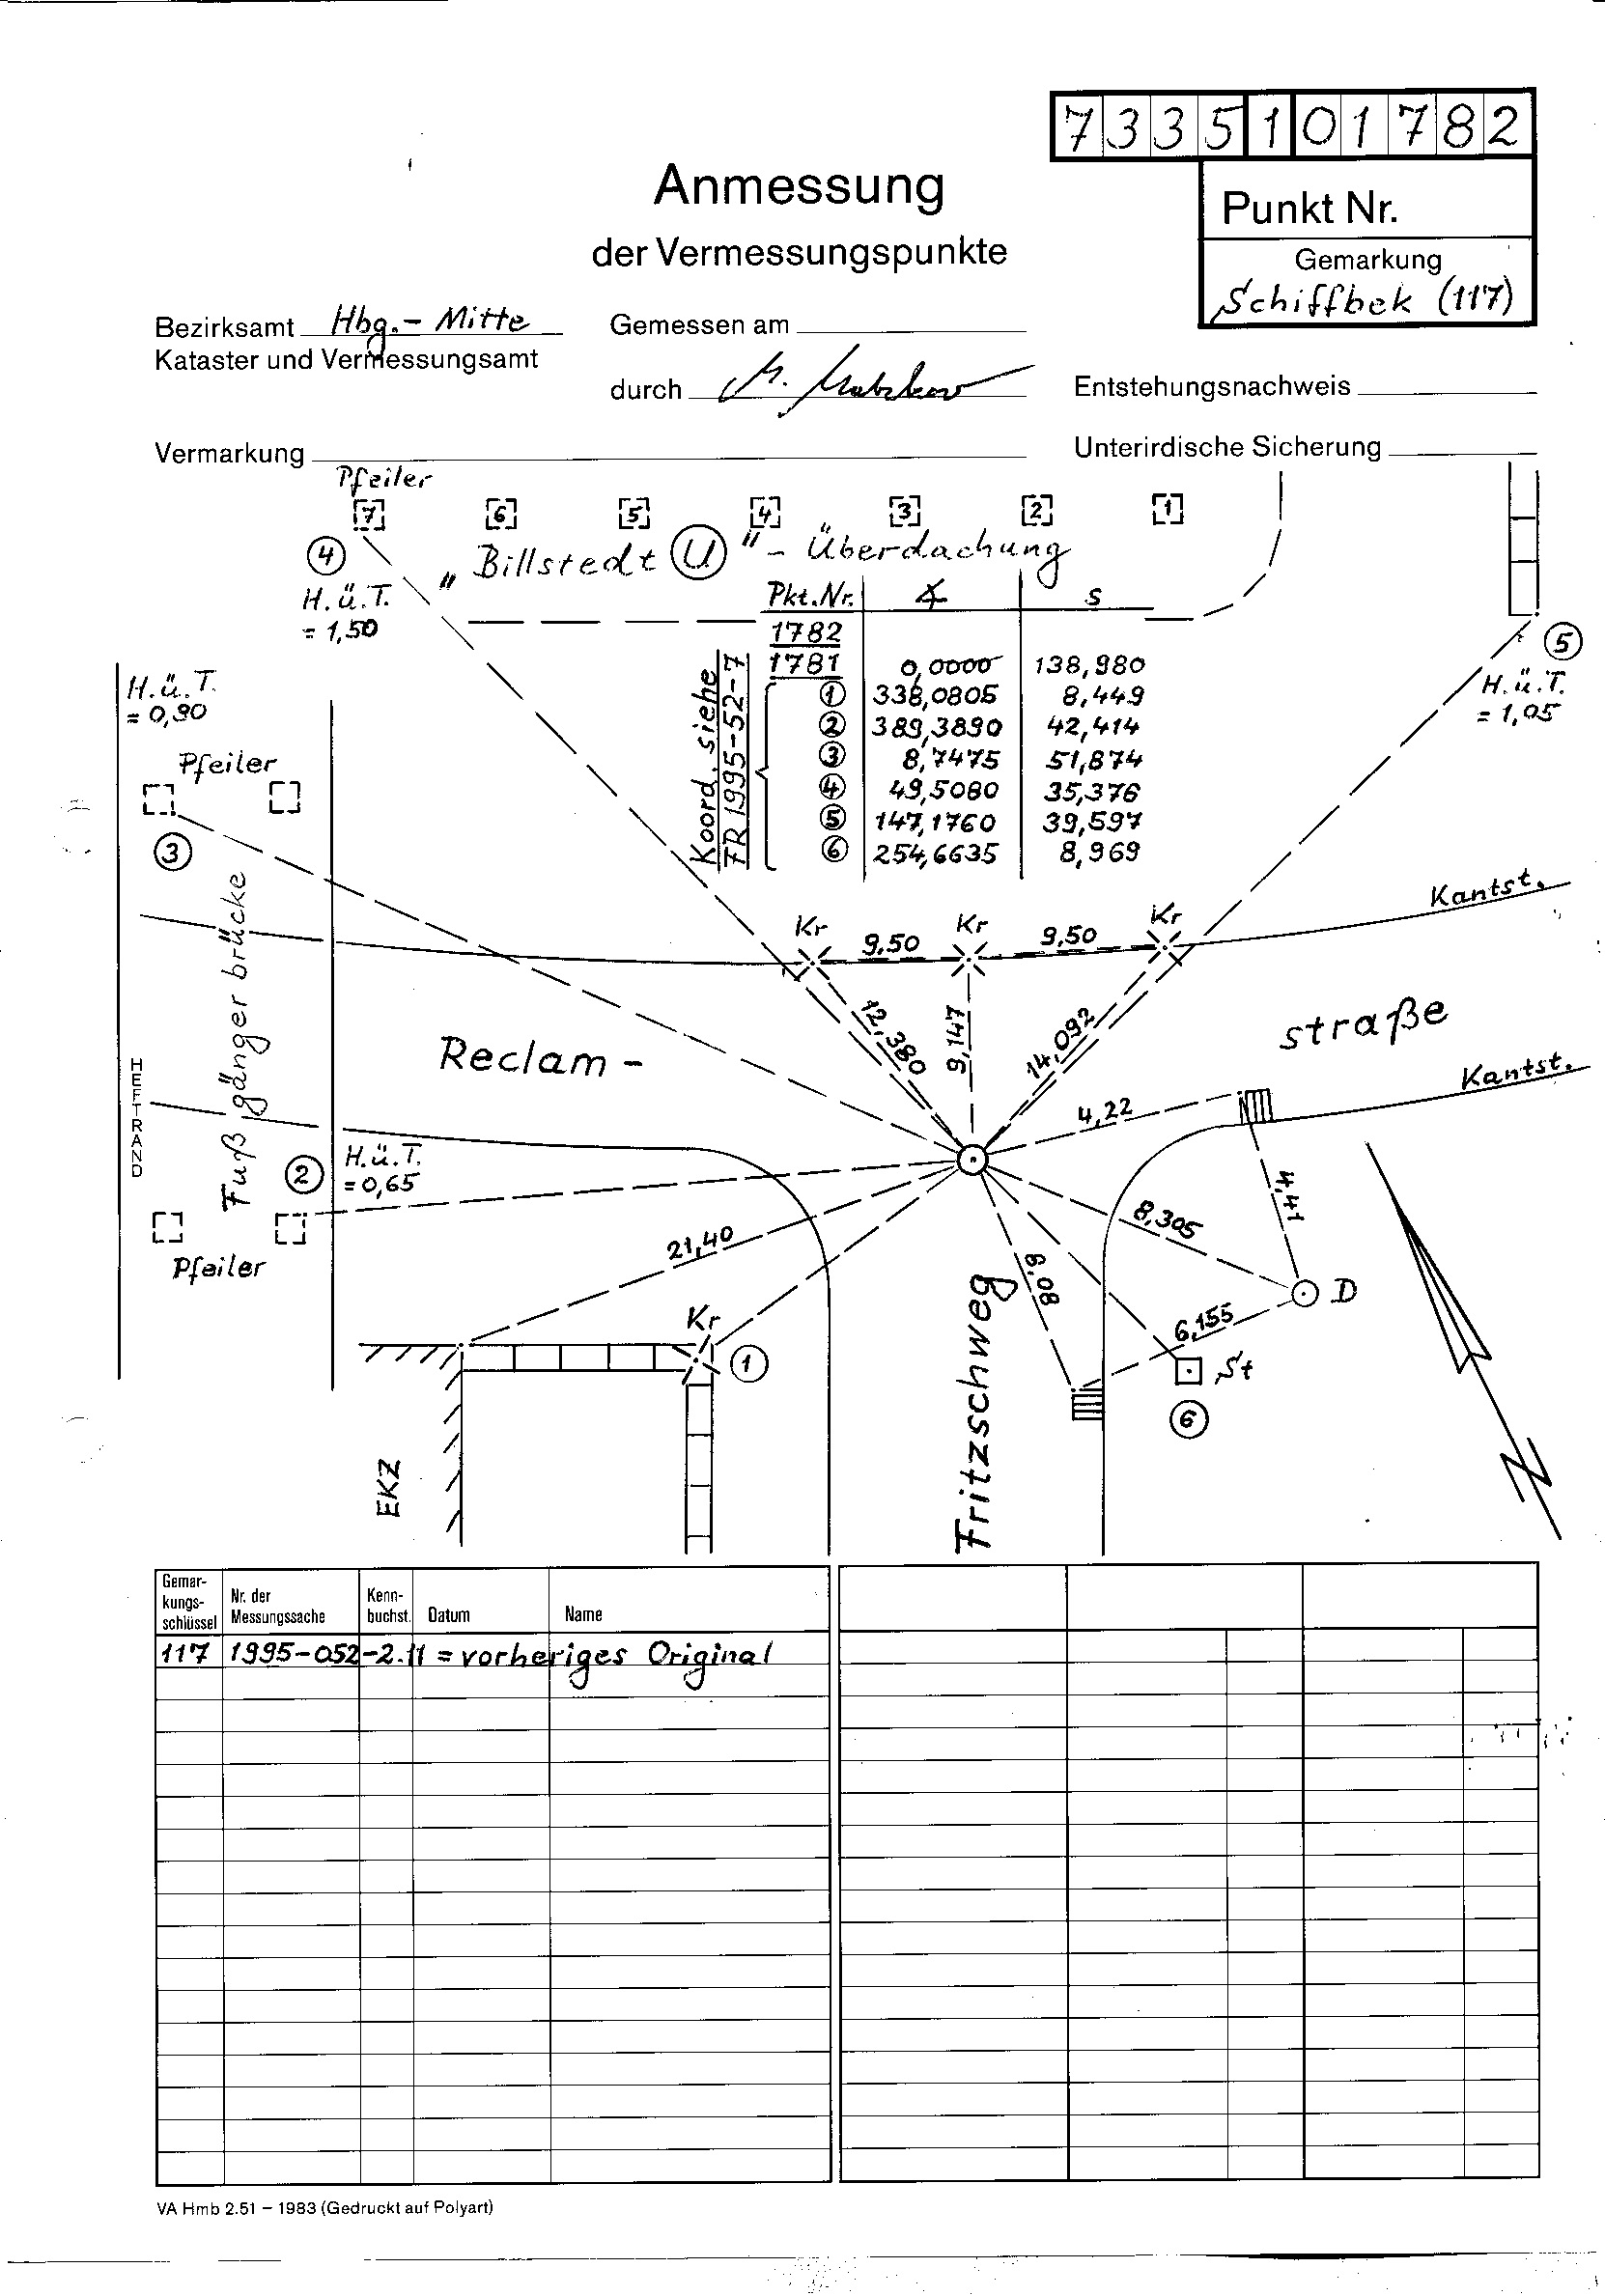 7335101782
Anmessung
der Vermessungspunkte
Punkt Nr.
Gemarkung
Schiffbek (117)
Bezirksamt Hbg.-Mitte
Kataster und Vermessungsamt
Gemessen am
durch
Entstehungsnachweis
Vermarkung
Unterirdische Sicherung
Pfeiler
7 6 5 4 3 2 1
"Billstedt U"-Überdachung
4
H.ü.T.
= 1,50
Pkt.Nr. ∡ s
1782
1781 0,0000 138,980
1 338,0805 8,449
2 389,3890 42,414
3 8,7475 51,874
4 49,5080 35,376
5 147,1760 39,597
6 254,6635 8,969
Koord. siehe
FR 1995-52-7
5
H.ü.T.
= 1,05
H.ü.T.
= 0,90
Pfeiler
3
Fußgängerbrücke
HEFTRAND
Kantst.
Kr 9,50 Kr 9,50 Kr
12,380
9,147
14,092
Reclam-
straße
Kantst.
4,22
2
H.ü.T.
= 0,65
Pfeiler
21,40
8,305
4,41
8,08
6,155
D
Kr
1
St
6
EKZ
Fritzschweg
N
Gemar-
kungs-
schlüssel
Nr. der
Messungssache
Kenn-
buchst.
Datum
Name
117 1995-052-2.11 = vorheriges Original
VA Hmb 2.51 – 1983 (Gedruckt auf Polyart)